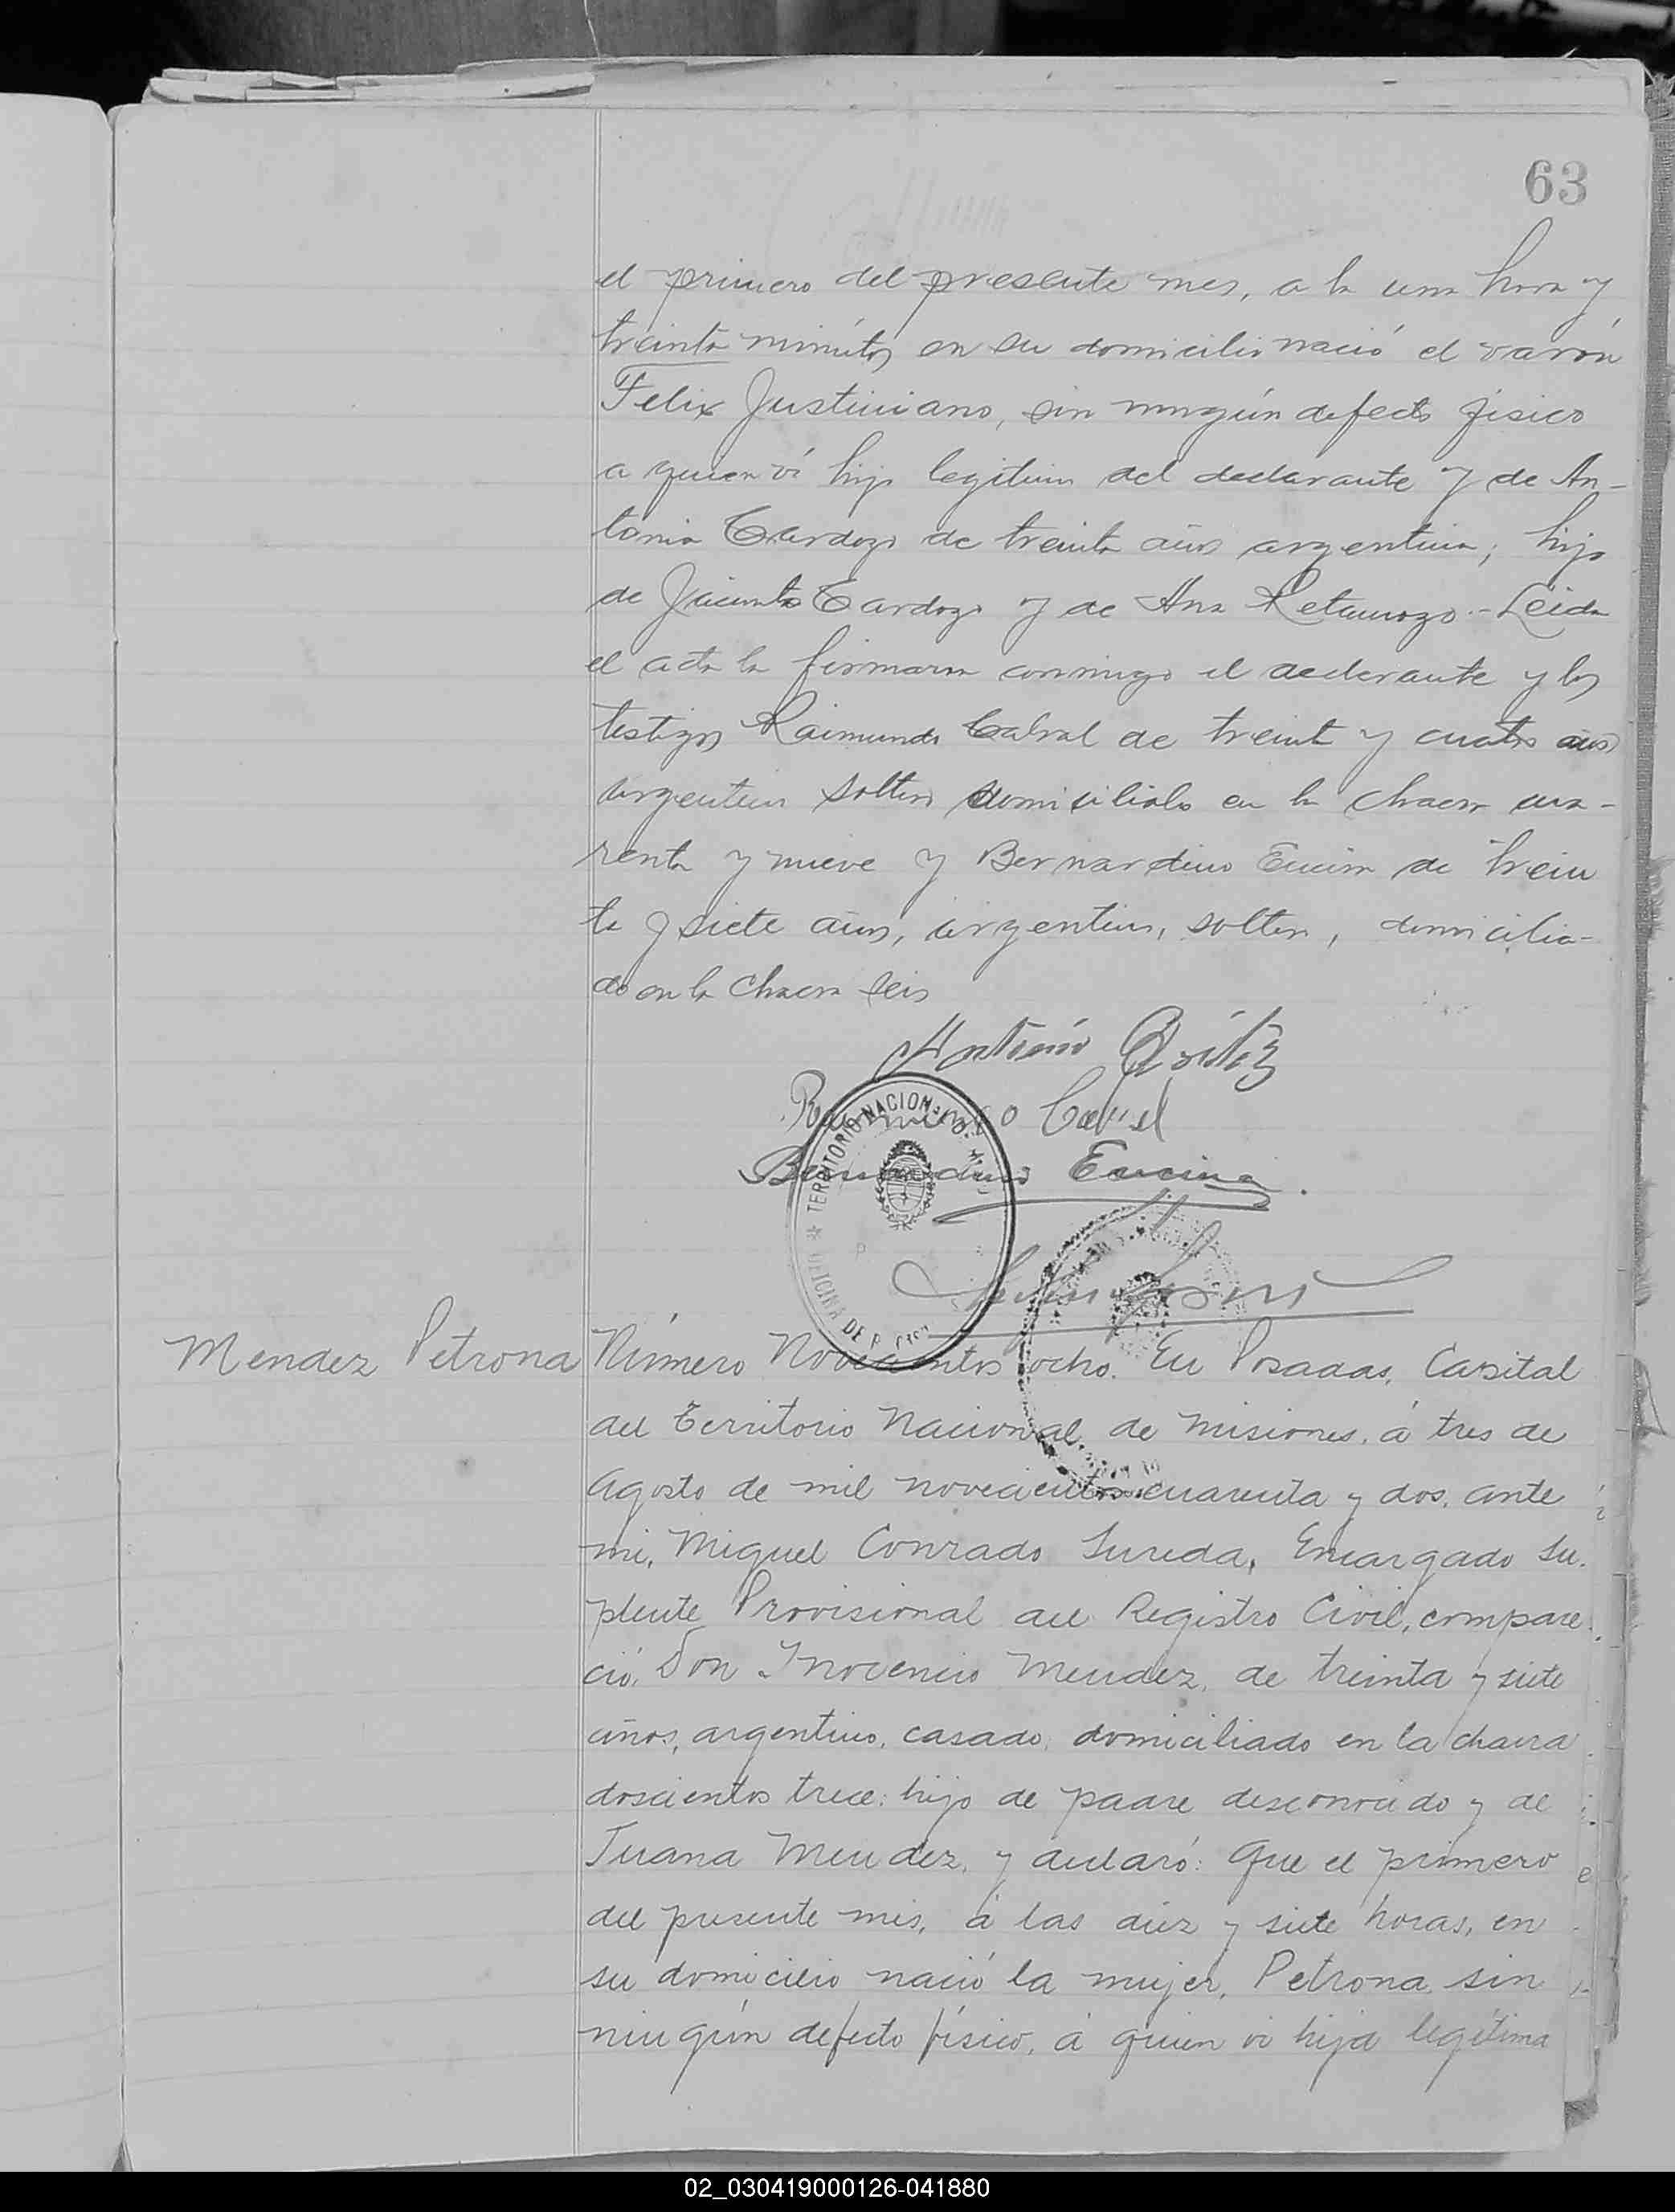 63
el primero del presente mes, a la una hora y
treinta minutos en su domicilio nació el varón
Felix Justiniano, sin ningún defecto físico
a quien vi hijo legitimo del declarante y de An-
tonia Cardozo de treinta años argentina; hija
de Jacinto Cardozo y de Ana Retamozo.- Leida
el acta la firmaron conmigo el declarante y los
testigos Raimundo Cabral de treinta y cuatro años
argentino soltero domiciliado en la chacra cua-
renta y nueve y Bernardino Encina de trein
ta y siete años, argentino, soltero, domicilia-
do en la chacra seis
Antonio
Raimundo Cabral
Bernardino Encina.
TERRITORIO NACIONAL
OFICINA DE
Mendez Petrona
Número Novecientos ocho. En Posadas, Capital
del Territorio Nacional de Misiones, á tres de
Agosto de mil novecientos cuarenta y dos, ante
mi, Miguel Conrado Sureda, Encargado Su-
plente Provisional del Registro Civil, compare-
ció, Don Inocencio Mendez, de treinta y siete
años, argentino, casado, domiciliado en la chacra
doscientos trece: hijo de padre desconocido y de
Juana Mendez, y declaró: Que el primero
del presente mes, á las diez y siete horas, en
su domicilio nació la mujer, Petrona, sin
ningún defecto físico, á quien vi hija legítima
02_030419000126-041880